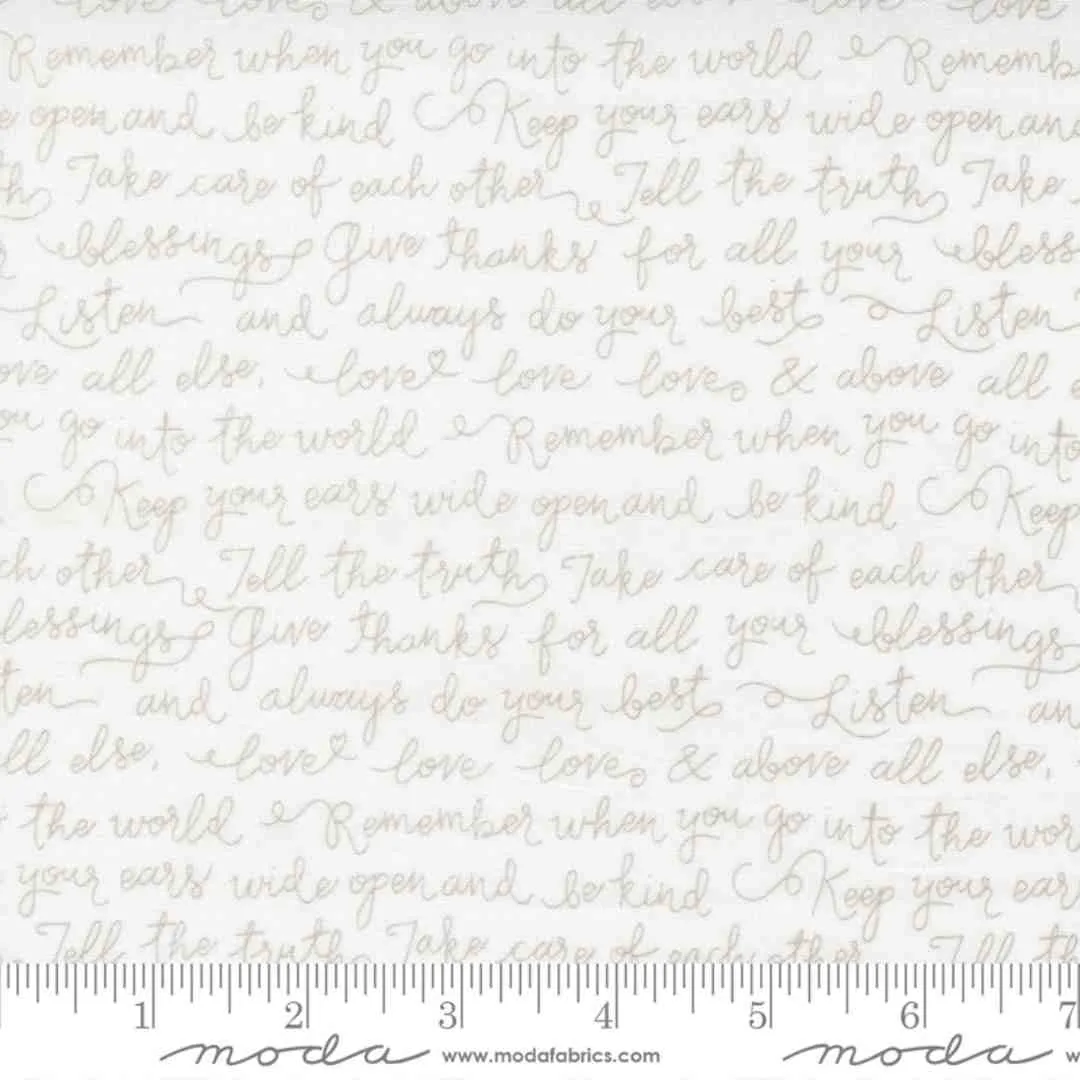 love love & above all else, love love
Remember when you go into the world Remember
open and be kind Keep your ears wide open and
Take care of each other Tell the truth Take
blessings Give thanks for all your
Listen and always do your best Listen
all else, love love love & above all
you go into the world Remember when you go into
Keep your ears wide open and be kind Keep
other Tell the truth Take care of each other
Give thanks for all your blessings
and always do your best Listen
else, love love love & above all else,
the world Remember when you go into the
your ears wide open and be kind Keep your
Tell the truth Take care of each other Tell
1 2 3 4 5 6 7
moda www.modafabrics.com moda